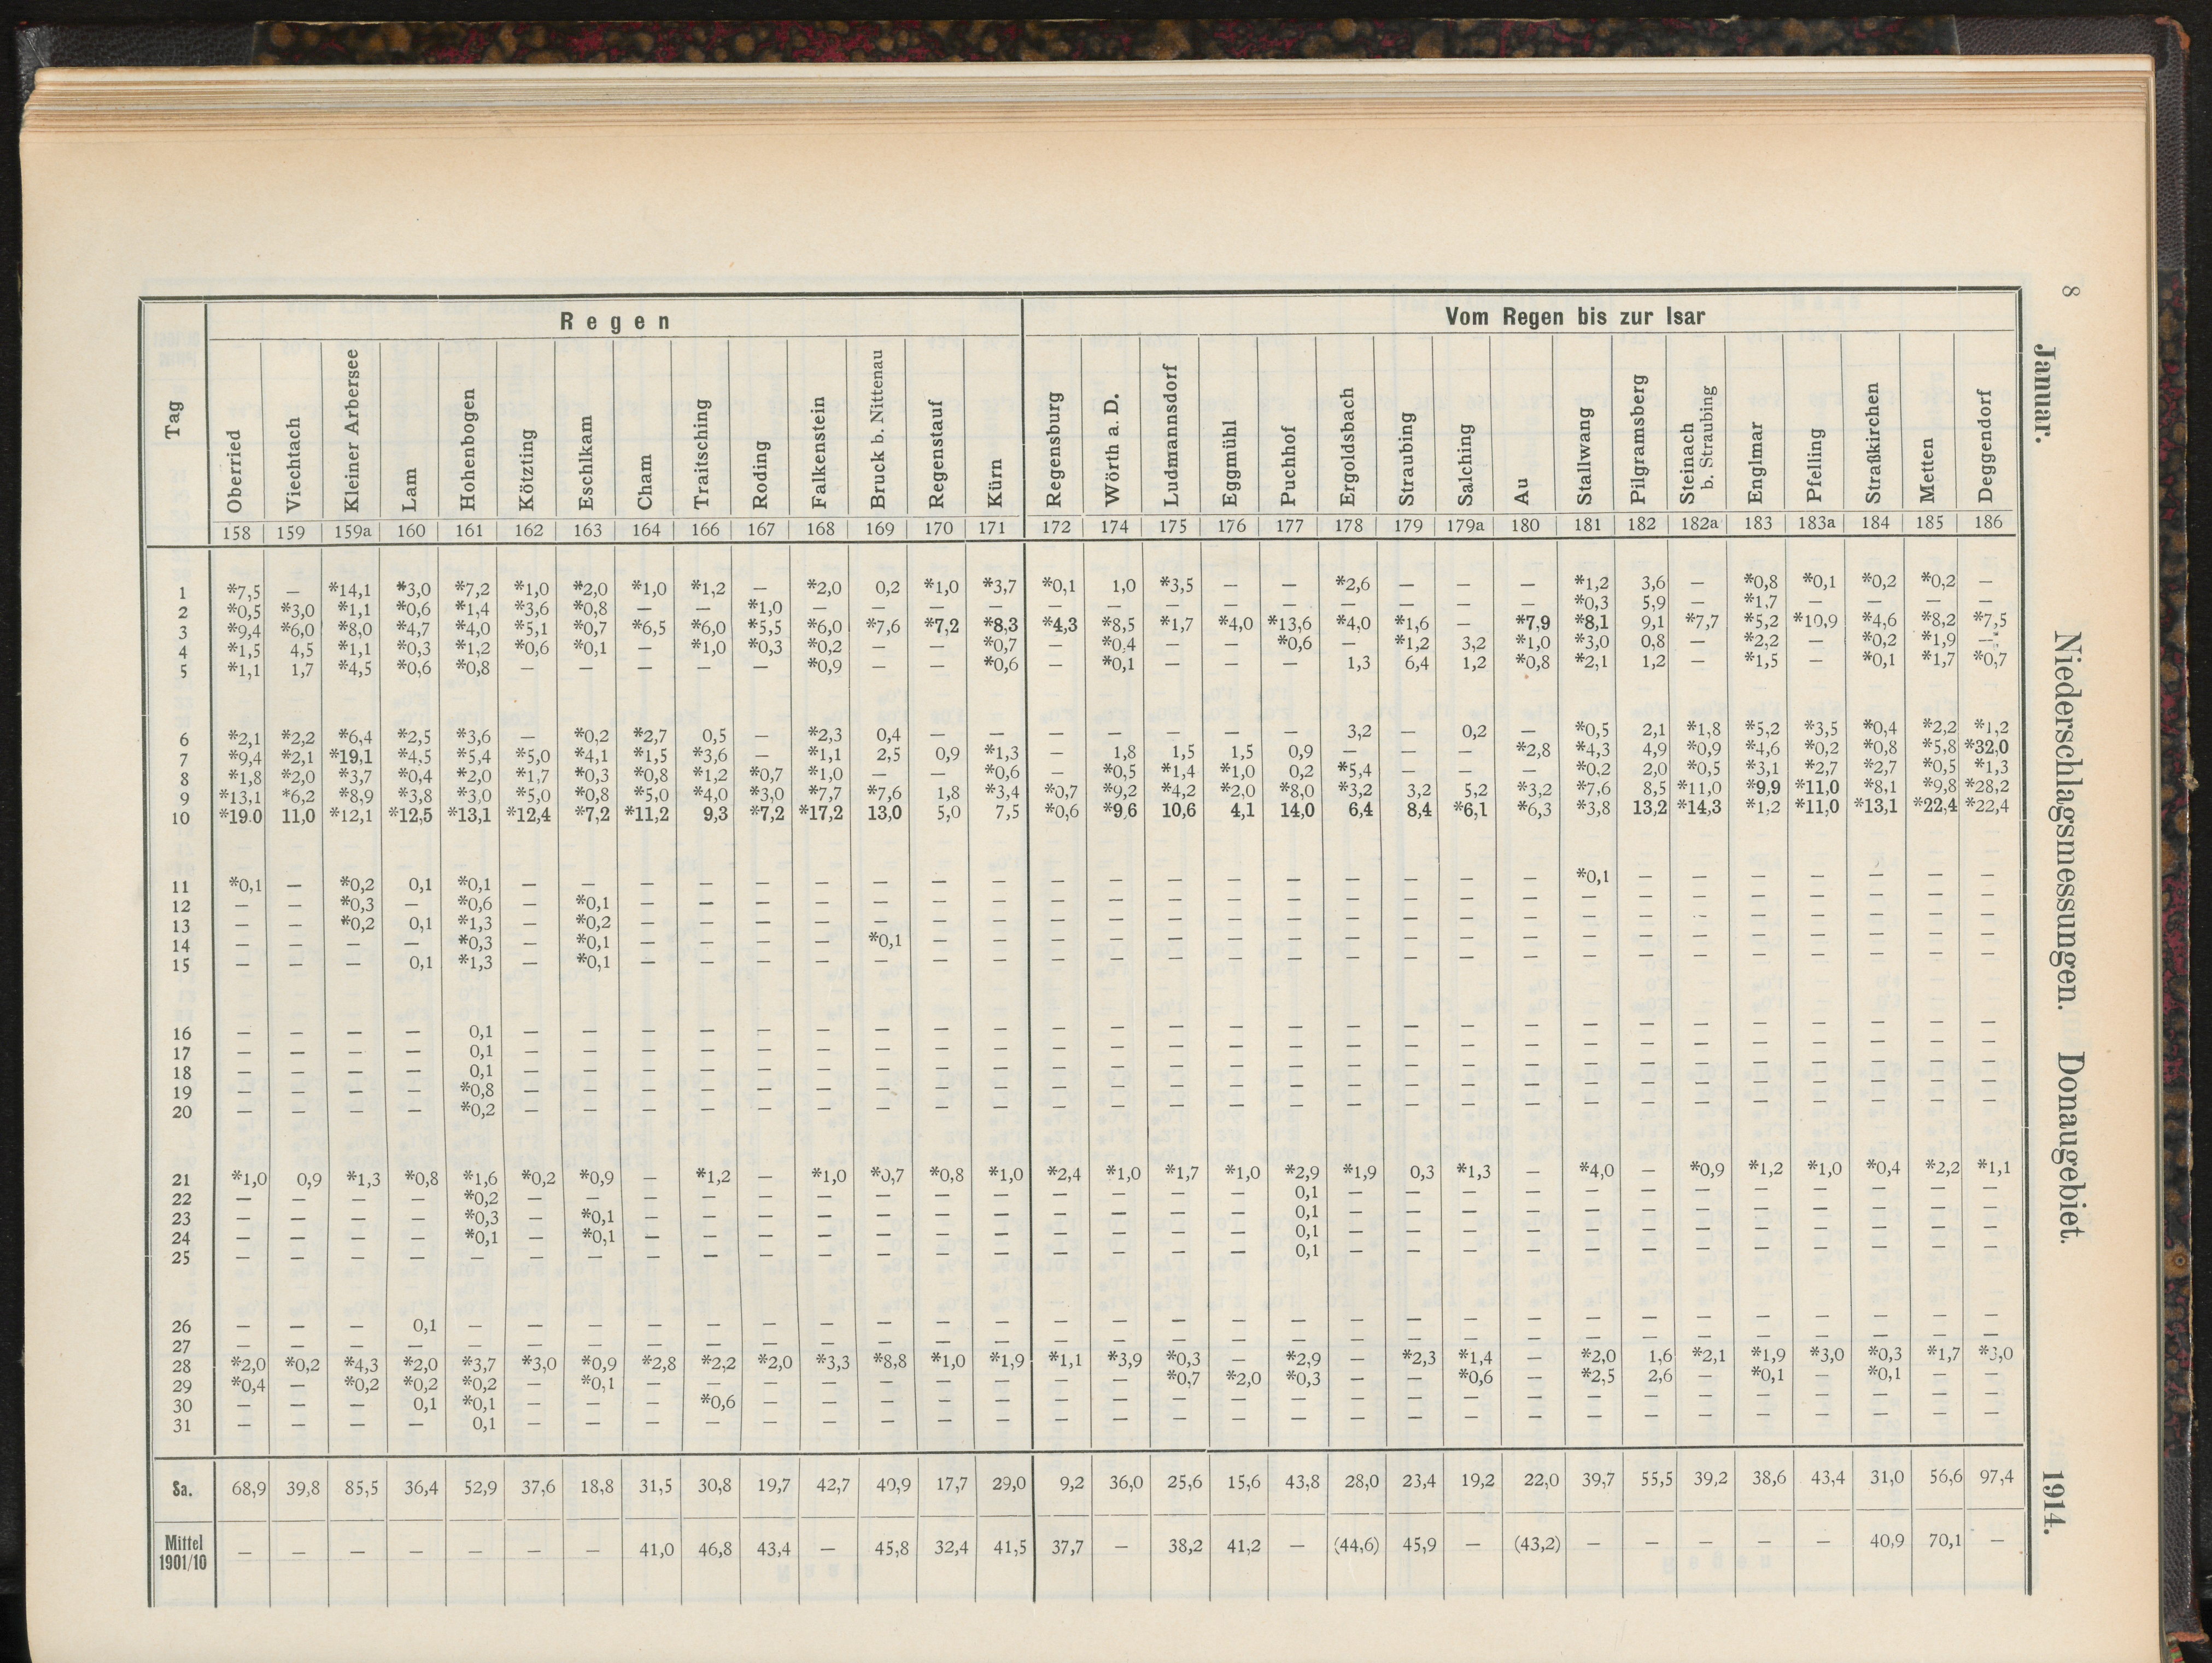 8
Januar. Niederschlagsmessungen. Donaugebiet. 1914.
Tag | Regen | Vom Regen bis zur Isar
Oberried | Viechtach | Kleiner Arbersee | Lam | Hohenbogen | Kötzting | Eschlkam | Cham | Traitsching | Roding | Falkenstein | Bruck b. Nittenau | Regenstauf | Kürn | Regensburg | Wörth a. D. | Ludmannsdorf | Eggmühl | Puchhof | Ergoldsbach | Straubing | Salching | Au | Stallwang | Pilgramsberg | Steinach b. Straubing | Englmar | Pfelling | Straßkirchen | Metten | Deggendorf
158 | 159 | 159a | 160 | 161 | 162 | 163 | 164 | 166 | 167 | 168 | 169 | 170 | 171 | 172 | 174 | 175 | 176 | 177 | 178 | 179 | 179a | 180 | 181 | 182 | 182a | 183 | 183a | 184 | 185 | 186
1 | *7,5 | — | *14,1 | *3,0 | *7,2 | *1,0 | *2,0 | *1,0 | *1,2 | — | *2,0 | 0,2 | *1,0 | *3,7 | *0,1 | 1,0 | *3,5 | — | — | *2,6 | — | — | — | *1,2 | 3,6 | — | *0,8 | *0,1 | *0,2 | *0,2 | —
2 | *0,5 | *3,0 | *1,1 | *0,6 | *1,4 | *3,6 | *0,8 | — | — | *1,0 | — | — | — | — | — | — | — | — | — | — | — | — | — | *0,3 | 5,9 | — | *1,7 | — | — | — | —
3 | *9,4 | *6,0 | *8,0 | *4,7 | *4,0 | *5,1 | *0,7 | *6,5 | *6,0 | *5,5 | *6,0 | *7,6 | *7,2 | *8,3 | *4,3 | *8,5 | *1,7 | *4,0 | *13,6 | *4,0 | *1,6 | — | *7,9 | *8,1 | 9,1 | *7,7 | *5,2 | *10,9 | *4,6 | *8,2 | *7,5
4 | *1,5 | 4,5 | *1,1 | *0,3 | *1,2 | *0,6 | *0,1 | — | *1,0 | *0,3 | *0,2 | — | — | *0,7 | — | *0,4 | — | — | *0,6 | — | *1,2 | 3,2 | *1,0 | *3,0 | 0,8 | — | *2,2 | — | *0,2 | *1,9 | —
5 | *1,1 | 1,7 | *4,5 | *0,6 | *0,8 | — | — | — | — | — | *0,9 | — | — | *0,6 | — | *0,1 | — | — | — | 1,3 | 6,4 | 1,2 | *0,8 | *2,1 | 1,2 | — | *1,5 | — | *0,1 | *1,7 | *0,7
6 | *2,1 | *2,2 | *6,4 | *2,5 | *3,6 | — | *0,2 | *2,7 | 0,5 | — | *2,3 | 0,4 | — | — | — | — | — | — | — | 3,2 | — | 0,2 | — | *0,5 | 2,1 | *1,8 | *5,2 | *3,5 | *0,4 | *2,2 | *1,2
7 | *9,4 | *2,1 | *19,1 | *4,5 | *5,4 | *5,0 | *4,1 | *1,5 | *3,6 | — | *1,1 | 2,5 | 0,9 | *1,3 | — | 1,8 | 1,5 | 1,5 | 0,9 | — | — | — | *2,8 | *4,3 | 4,9 | *0,9 | *4,6 | *0,2 | *0,8 | *5,8 | *32,0
8 | *1,8 | *2,0 | *3,7 | *0,4 | *2,0 | *1,7 | *0,3 | *0,8 | *1,2 | *0,7 | *1,0 | — | — | *0,6 | — | *0,5 | *1,4 | *1,0 | 0,2 | *5,4 | — | — | — | *0,2 | 2,0 | *0,5 | *3,1 | *2,7 | *2,7 | *0,5 | *1,3
9 | *13,1 | *6,2 | *8,9 | *3,8 | *3,0 | *5,0 | *0,8 | *5,0 | *4,0 | *3,0 | *7,7 | *7,6 | 1,8 | *3,4 | *0,7 | *9,2 | *4,2 | *2,0 | *8,0 | *3,2 | 3,2 | 5,2 | *3,2 | *7,6 | 8,5 | *11,0 | *9,9 | *11,0 | *8,1 | *9,8 | *28,2
10 | *19.0 | 11,0 | *12,1 | *12,5 | *13,1 | *12,4 | *7,2 | *11,2 | 9,3 | *7,2 | *17,2 | 13,0 | 5,0 | 7,5 | *0,6 | *9,6 | 10,6 | 4,1 | 14,0 | 6,4 | 8,4 | *6,1 | *6,3 | *3,8 | 13,2 | *14,3 | *1,2 | *11,0 | *13,1 | *22,4 | *22,4
11 | *0,1 | — | *0,2 | 0,1 | *0,1 | — | — | — | — | — | — | — | — | — | — | — | — | — | — | — | — | — | — | *0,1 | — | — | — | — | — | — | —
12 | — | — | *0,3 | — | *0,6 | — | *0,1 | — | — | — | — | — | — | — | — | — | — | — | — | — | — | — | — | — | — | — | — | — | — | — | —
13 | — | — | *0,2 | 0,1 | *1,3 | — | *0,2 | — | — | — | — | — | — | — | — | — | — | — | — | — | — | — | — | — | — | — | — | — | — | — | —
14 | — | — | — | — | *0,3 | — | *0,1 | — | — | — | — | *0,1 | — | — | — | — | — | — | — | — | — | — | — | — | — | — | — | — | — | — | —
15 | — | — | — | 0,1 | *1,3 | — | *0,1 | — | — | — | — | — | — | — | — | — | — | — | — | — | — | — | — | — | — | — | — | — | — | — | —
16 | — | — | — | — | 0,1 | — | — | — | — | — | — | — | — | — | — | — | — | — | — | — | — | — | — | — | — | — | — | — | — | — | —
17 | — | — | — | — | 0,1 | — | — | — | — | — | — | — | — | — | — | — | — | — | — | — | — | — | — | — | — | — | — | — | — | — | —
18 | — | — | — | — | 0,1 | — | — | — | — | — | — | — | — | — | — | — | — | — | — | — | — | — | — | — | — | — | — | — | — | — | —
19 | — | — | — | — | *0,8 | — | — | — | — | — | — | — | — | — | — | — | — | — | — | — | — | — | — | — | — | — | — | — | — | — | —
20 | — | — | — | — | *0,2 | — | — | — | — | — | — | — | — | — | — | — | — | — | — | — | — | — | — | — | — | — | — | — | — | — | —
21 | *1,0 | 0,9 | *1,3 | *0,8 | *1,6 | *0,2 | *0,9 | — | *1,2 | — | *1,0 | *0,7 | *0,8 | *1,0 | *2,4 | *1,0 | *1,7 | *1,0 | *2,9 | *1,9 | 0,3 | *1,3 | — | *4,0 | — | *0,9 | *1,2 | *1,0 | *0,4 | *2,2 | *1,1
22 | — | — | — | — | *0,2 | — | — | — | — | — | — | — | — | — | — | — | — | — | 0,1 | — | — | — | — | — | — | — | — | — | — | — | —
23 | — | — | — | — | *0,3 | — | *0,1 | — | — | — | — | — | — | — | — | — | — | — | 0,1 | — | — | — | — | — | — | — | — | — | — | — | —
24 | — | — | — | — | *0,1 | — | *0,1 | — | — | — | — | — | — | — | — | — | — | — | 0,1 | — | — | — | — | — | — | — | — | — | — | — | —
25 | — | — | — | — | — | — | — | — | — | — | — | — | — | — | — | — | — | — | 0,1 | — | — | — | — | — | — | — | — | — | — | — | —
26 | — | — | — | 0,1 | — | — | — | — | — | — | — | — | — | — | — | — | — | — | — | — | — | — | — | — | — | — | — | — | — | — | —
27 | — | — | — | — | — | — | — | — | — | — | — | — | — | — | — | — | — | — | — | — | — | — | — | — | — | — | — | — | — | — | —
28 | *2,0 | *0,2 | *4,3 | *2,0 | *3,7 | *3,0 | *0,9 | *2,8 | *2,2 | *2,0 | *3,3 | *8,8 | *1,0 | *1,9 | *1,1 | *3,9 | *0,3 | — | *2,9 | — | *2,3 | *1,4 | — | *2,0 | 1,6 | *2,1 | *1,9 | *3,0 | *0,3 | *1,7 | *3,0
29 | *0,4 | — | *0,2 | *0,2 | *0,2 | — | *0,1 | — | — | — | — | — | — | — | — | — | *0,7 | *2,0 | *0,3 | — | — | *0,6 | — | *2,5 | 2,6 | — | *0,1 | — | *0,1 | — | —
30 | — | — | — | 0,1 | *0,1 | — | — | — | *0,6 | — | — | — | — | — | — | — | — | — | — | — | — | — | — | — | — | — | — | — | — | — | —
31 | — | — | — | — | 0,1 | — | — | — | — | — | — | — | — | — | — | — | — | — | — | — | — | — | — | — | — | — | — | — | — | — | —
Sa. | 68,9 | 39,8 | 85,5 | 36,4 | 52,9 | 37,6 | 18,8 | 31,5 | 30,8 | 19,7 | 42,7 | 40,9 | 17,7 | 29,0 | 9,2 | 36,0 | 25,6 | 15,6 | 43,8 | 28,0 | 23,4 | 19,2 | 22,0 | 39,7 | 55,5 | 39,2 | 38,6 | 43,4 | 31,0 | 56,6 | 97,4
Mittel 1901/10 | — | — | — | — | — | — | — | 41,0 | 46,8 | 43,4 | — | 45,8 | 32,4 | 41,5 | 37,7 | — | 38,2 | 41,2 | — | (44,6) | 45,9 | — | (43,2) | — | — | — | — | — | 40,9 | 70,1 | —